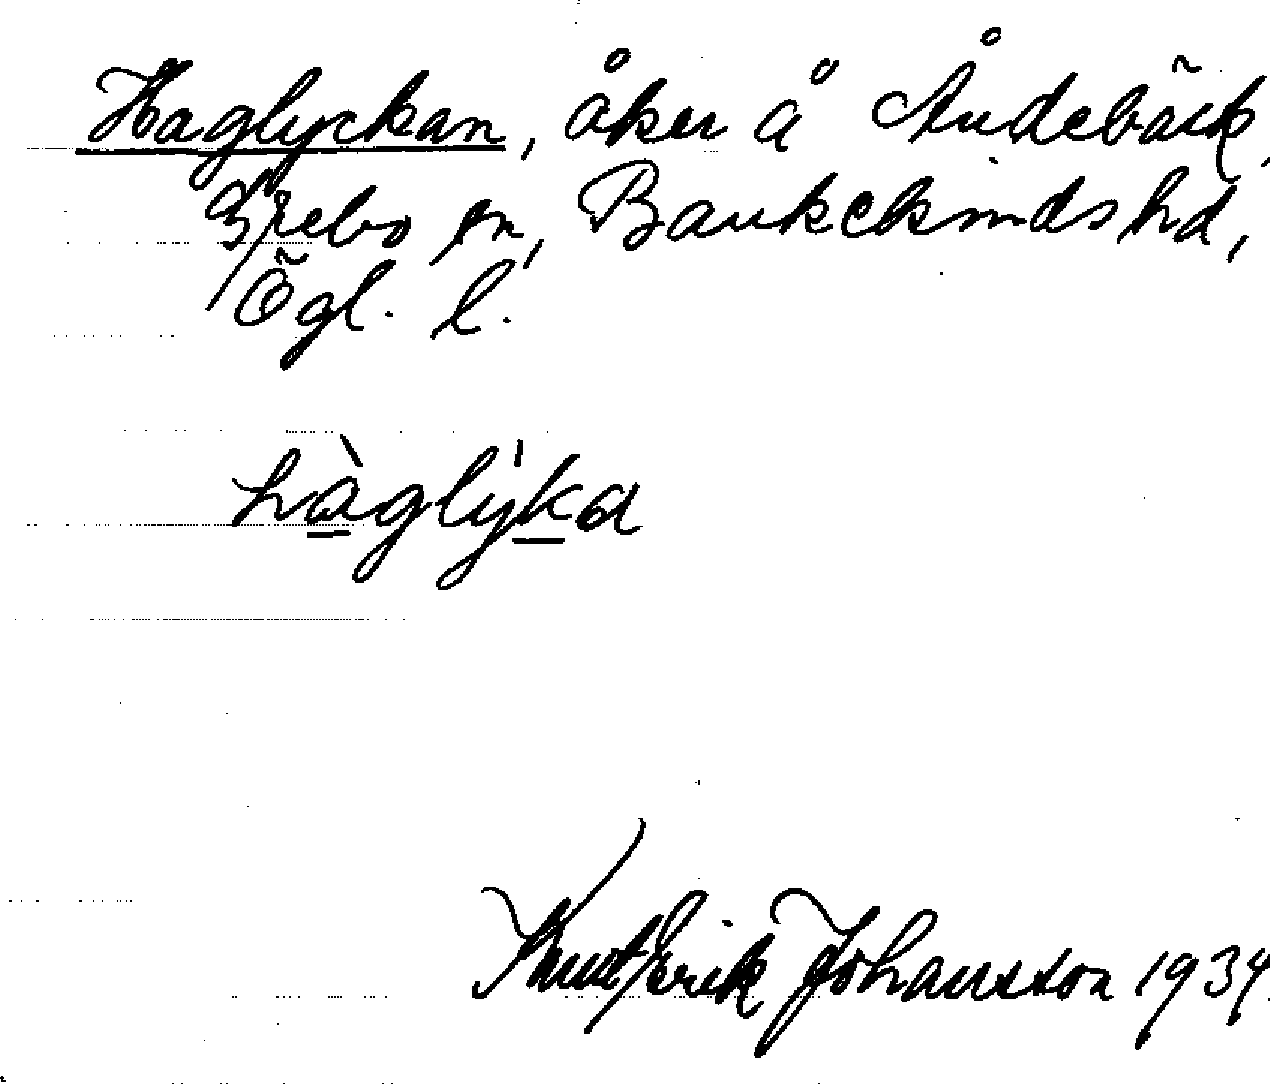 Haglyckan, åker å Åndebäck,
Grebo sn, Bankekinds hd,
Ögl. l.
hàglỳka
Knut Erik Johansson 1934.